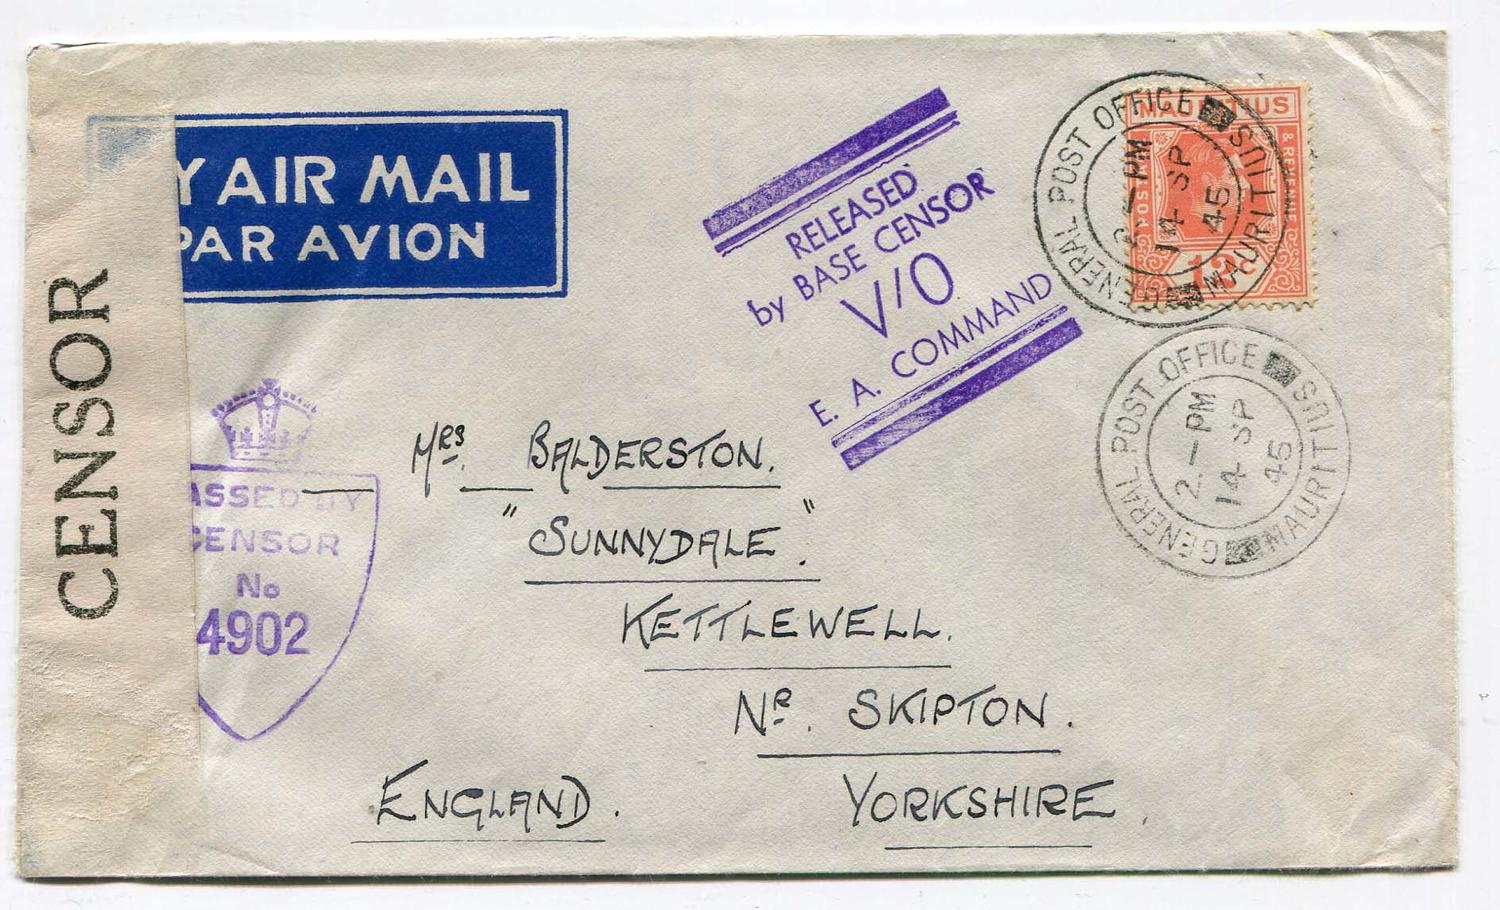 CENSOR
Y AIR MAIL
PAR AVION
ASSED BY
CENSOR
No
4902
RELEASED
by BASE CENSOR
V/O
E. A. COMMAND
MAURITIUS
POSTAGE
& REVENUE
12c
GENERAL POST OFFICE MAURITIUS
2 - PM
14 SP
45
GENERAL POST OFFICE MAURITIUS
2 - PM
14 SP
45
Mrs. BALDERSTON.
"SUNNYDALE".
KETTLEWELL.
Nr. SKIPTON.
YORKSHIRE.
ENGLAND.